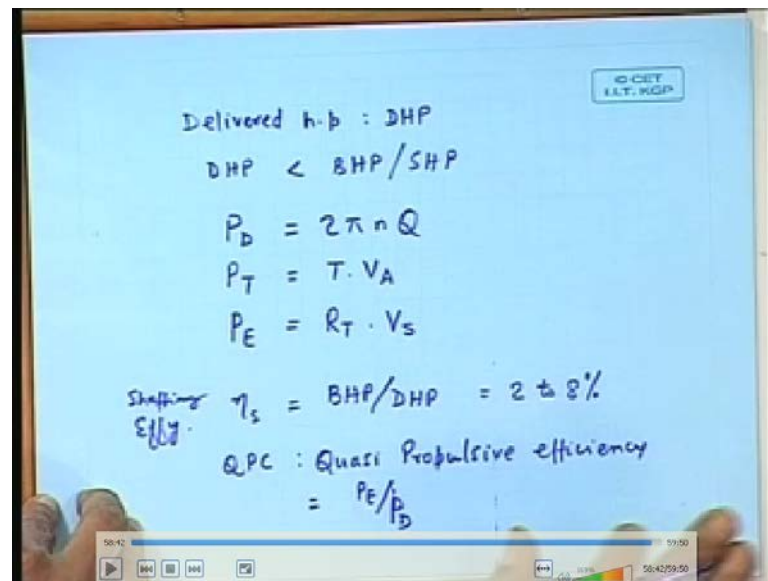 © CET
I.I.T. KGP
Delivered h.p : DHP
DHP < BHP/SHP
P_D = 2πnQ
P_T = T. V_A
P_E = R_T . V_S
Shafting η_s = BHP/DHP = 2 to 8%
Effy.
QPC : Quasi Propulsive efficiency
= P_E/P_D
58:42 59:50
58:42/59:50